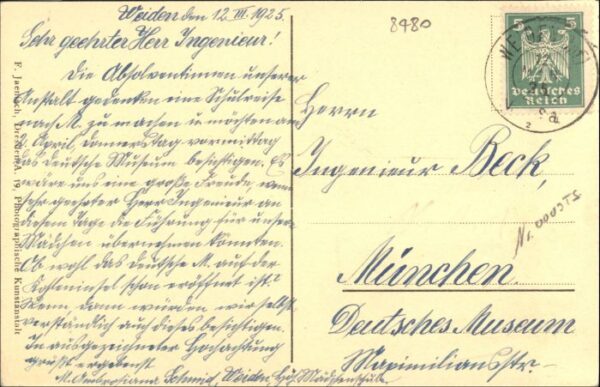 Weiden den 12. III. 1925.
Sehr geehrter Herr Ingenieur!
Die Absolventinnen unserer
Anstalt gedenken eine Schulreise
nach M. zu machen u. möchten am
April, Donnerstag vormittag
das Deutsche Museum besichtigen. Es
wäre uns eine große Freude, wenn
sehr geehrter Herr Ingenieur an
diesem Tage die Führung für unsere
Mädchen übernehmen könnten.
Ob wohl das deutsche M. auf der
Kohleninsel schon eröffnet ist?
Wenn dann würden wir selbst
verständlich auch dieses besichtigen.
In ausgezeichneter Hochachtung
grüßt ergebenst
M. Ambrosiana Schmid, Weiden Höh. Mädchenschule
8480
5 5
Deutsches
Reich
Herrn
Ingenieur Beck,
München.
Deutsches Museum
Maximilianstr.-
F. Jaensch, Dresden-A. 19, Photographische Kunstanstalt